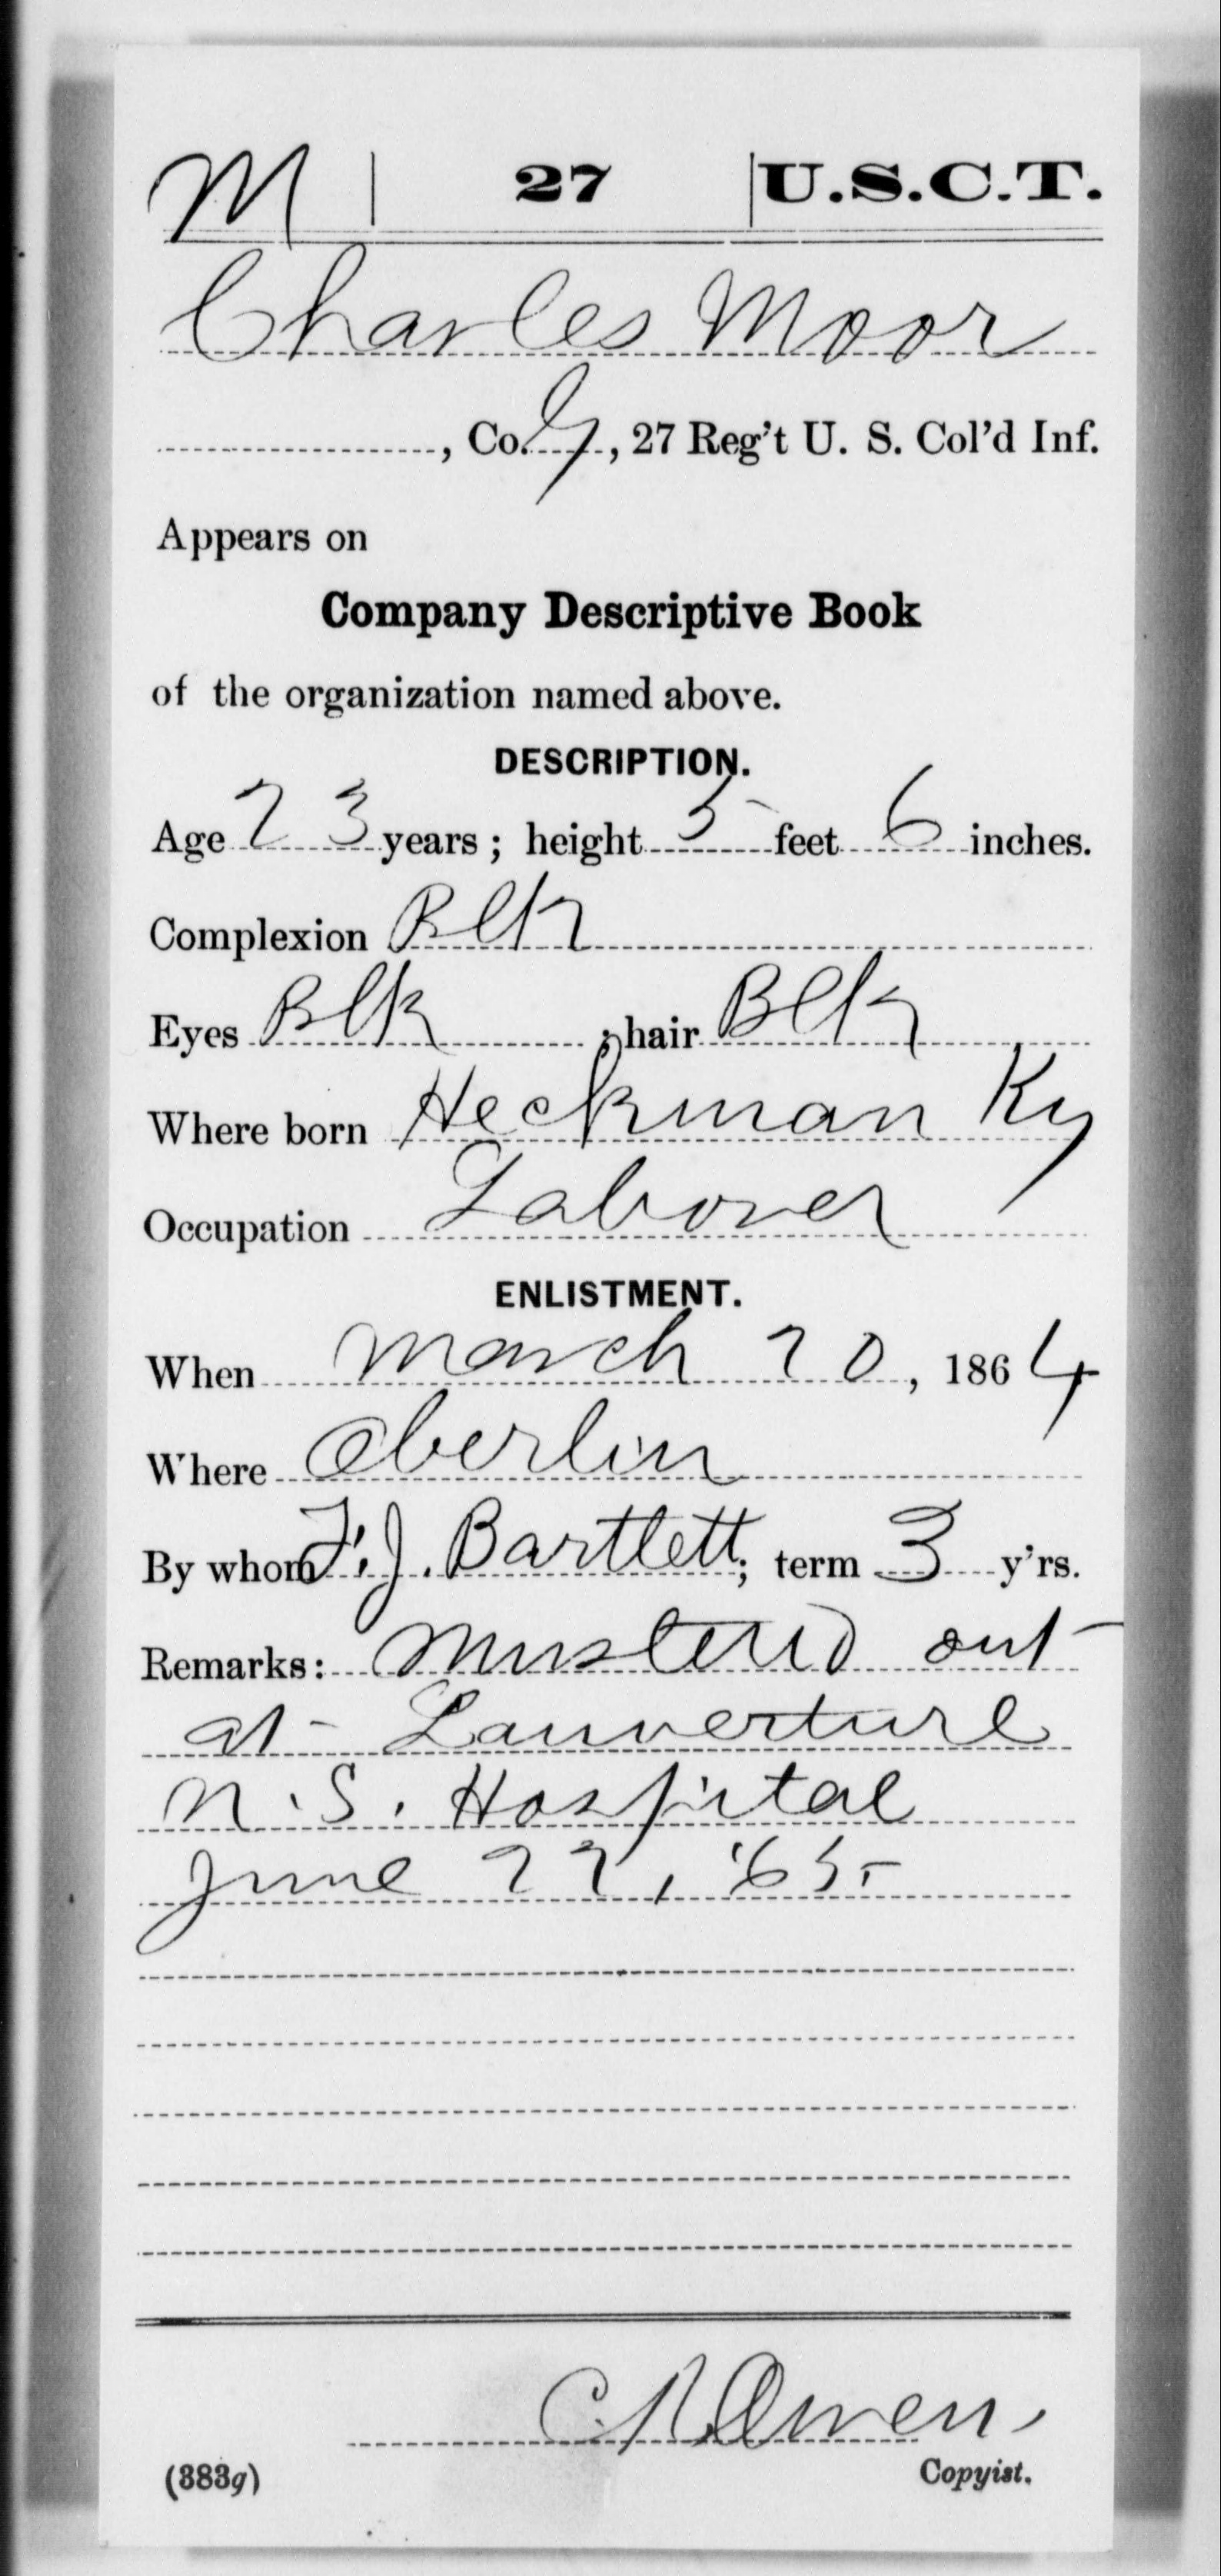 M | 27 | U.S.C.T.
Charles Moor
, Co. G, 27 Reg't U. S. Col'd Inf.
Appears on
Company Descriptive Book
of the organization named above.
DESCRIPTION.
Age 23 years; height 5 feet 6 inches.
Complexion Blk
Eyes Blk ; hair Blk
Where born Heckman Ky
Occupation Laborer
ENLISTMENT.
When March 20, 1864
Where Oberlin
By whom F. J. Bartlett; term 3 y'rs.
Remarks: Mustered out
at Lauverture
N.S. Hospital
June 22, '65
Owen
Copyist.
(383g)